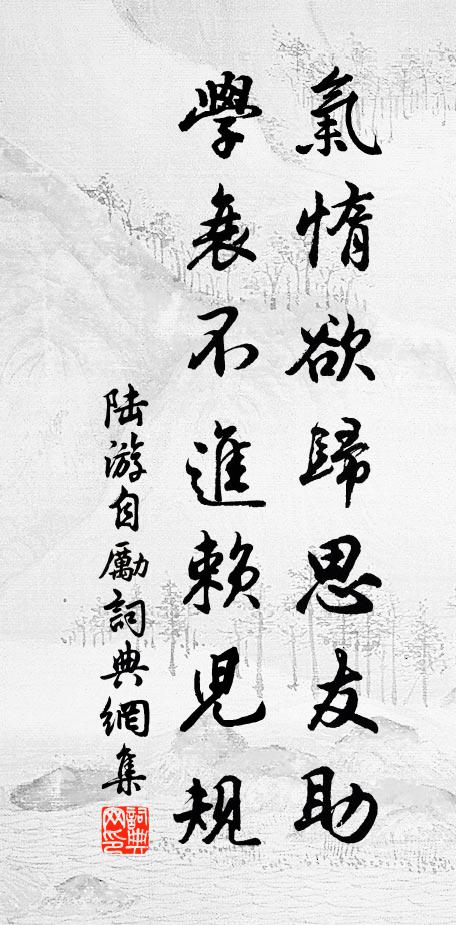 氣惰欲歸思友助
學衰不進賴兒規
陸游自勵詞典網集
詞典网印